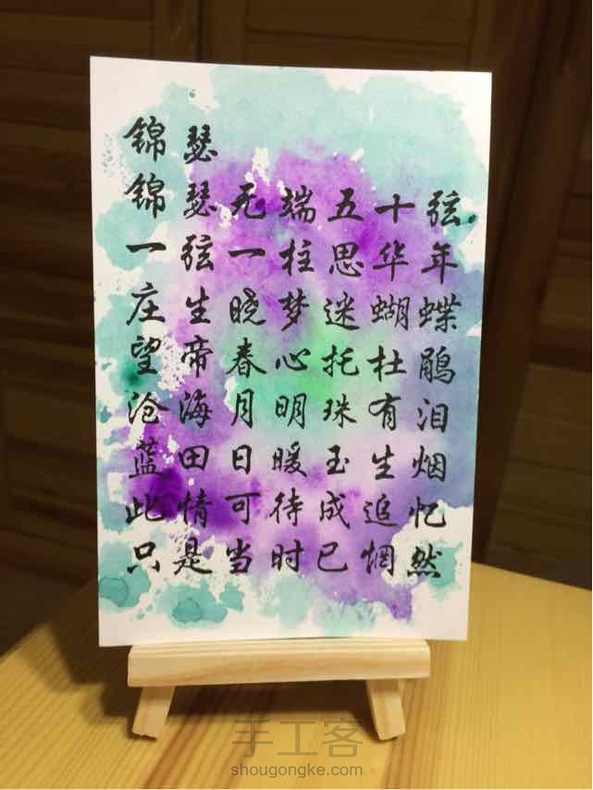 锦瑟
锦瑟无端五十弦
一弦一柱思华年
庄生晓梦迷蝴蝶
望帝春心托杜鹃
沧海月明珠有泪
蓝田日暖玉生烟
此情可待成追忆
只是当时已惘然
手工客
shougongke.com